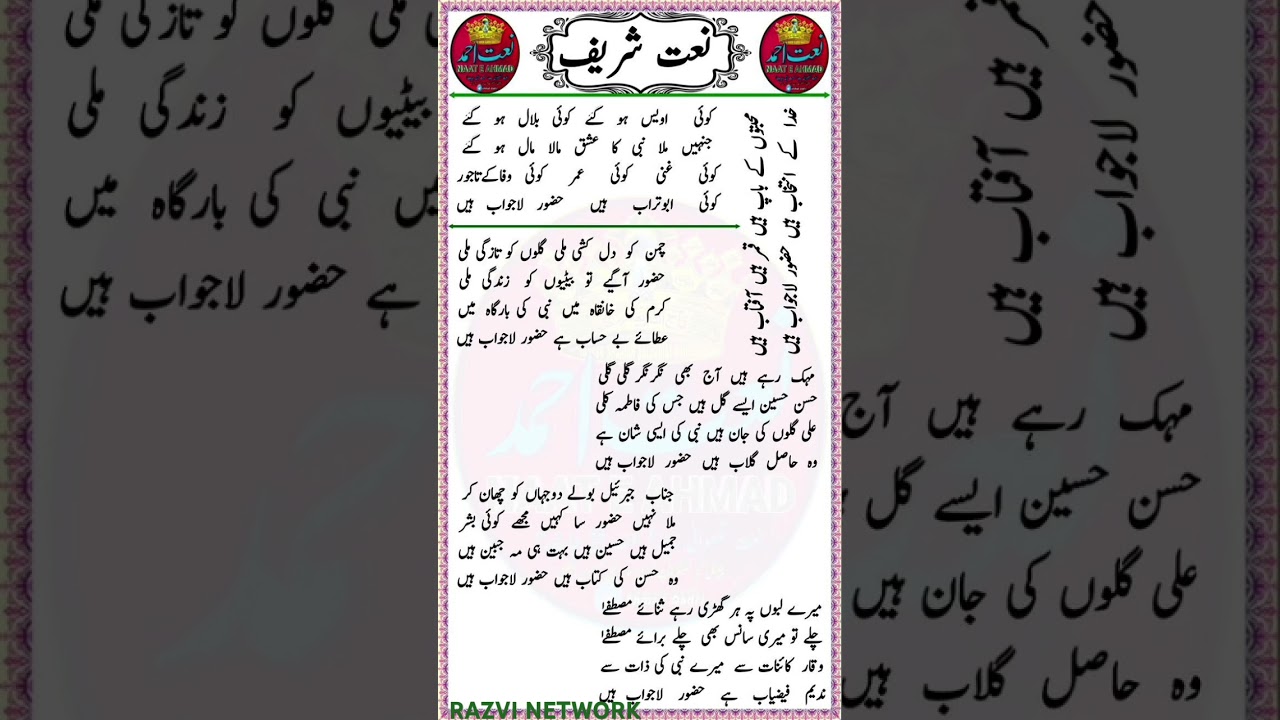 نعت شریف
نعت احمد
NAAT E AHMAD
نعت احمد
NAAT E AHMAD
خدا کے انتخاب ہیں حضور لاجواب ہیں
محبتوں کے باپ ہیں قمر ہیں آفتاب ہیں
کوئی اویس ہو گئے کوئی بلال ہو گئے
جنہیں ملا نبی کا عشق مالا مال ہو گئے
کوئی غنی کوئی عمر کوئی وفا کے تاجور
کوئی ابوتراب ہیں حضور لاجواب ہیں
چمن کو دل کشی ملی گلوں کو تازگی ملی
حضور آگیے تو بیٹیوں کو زندگی ملی
کرم کی خانقاہ میں نبی کی بارگاہ میں
عطائے بے حساب ہے حضور لاجواب ہیں
مہک رہے ہیں آج بھی نگر نگر گلی گلی
حسن حسین ایسے گل ہیں جس کی فاطمہ کلی
علی گلوں کی جان ہیں نبی کی ایسی شان ہے
وہ حاصل گلاب ہیں حضور لاجواب ہیں
جناب جبرئیل بولے دوجہاں کو چھان کر
ملا نہیں حضور سا کہیں مجھے کوئی بشر
جمیل ہیں حسین ہیں بہت ہی مہ جبین ہیں
وہ حسن کی کتاب ہیں حضور لاجواب ہیں
میرے لبوں پہ ہر گھڑی رہے ثنائے مصطفیٰ
چلے تو میری سانس بھی چلے برائے مصطفیٰ
وقار کائنات سے میرے نبی کی ذات سے
ندیم فیضیاب ہے حضور لاجواب ہیں
RAZVI NETWORK